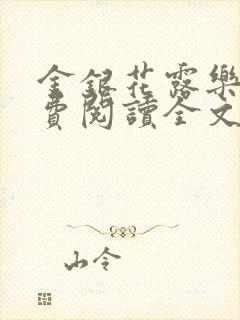 金銀花露樂
費閱讀全文
山令